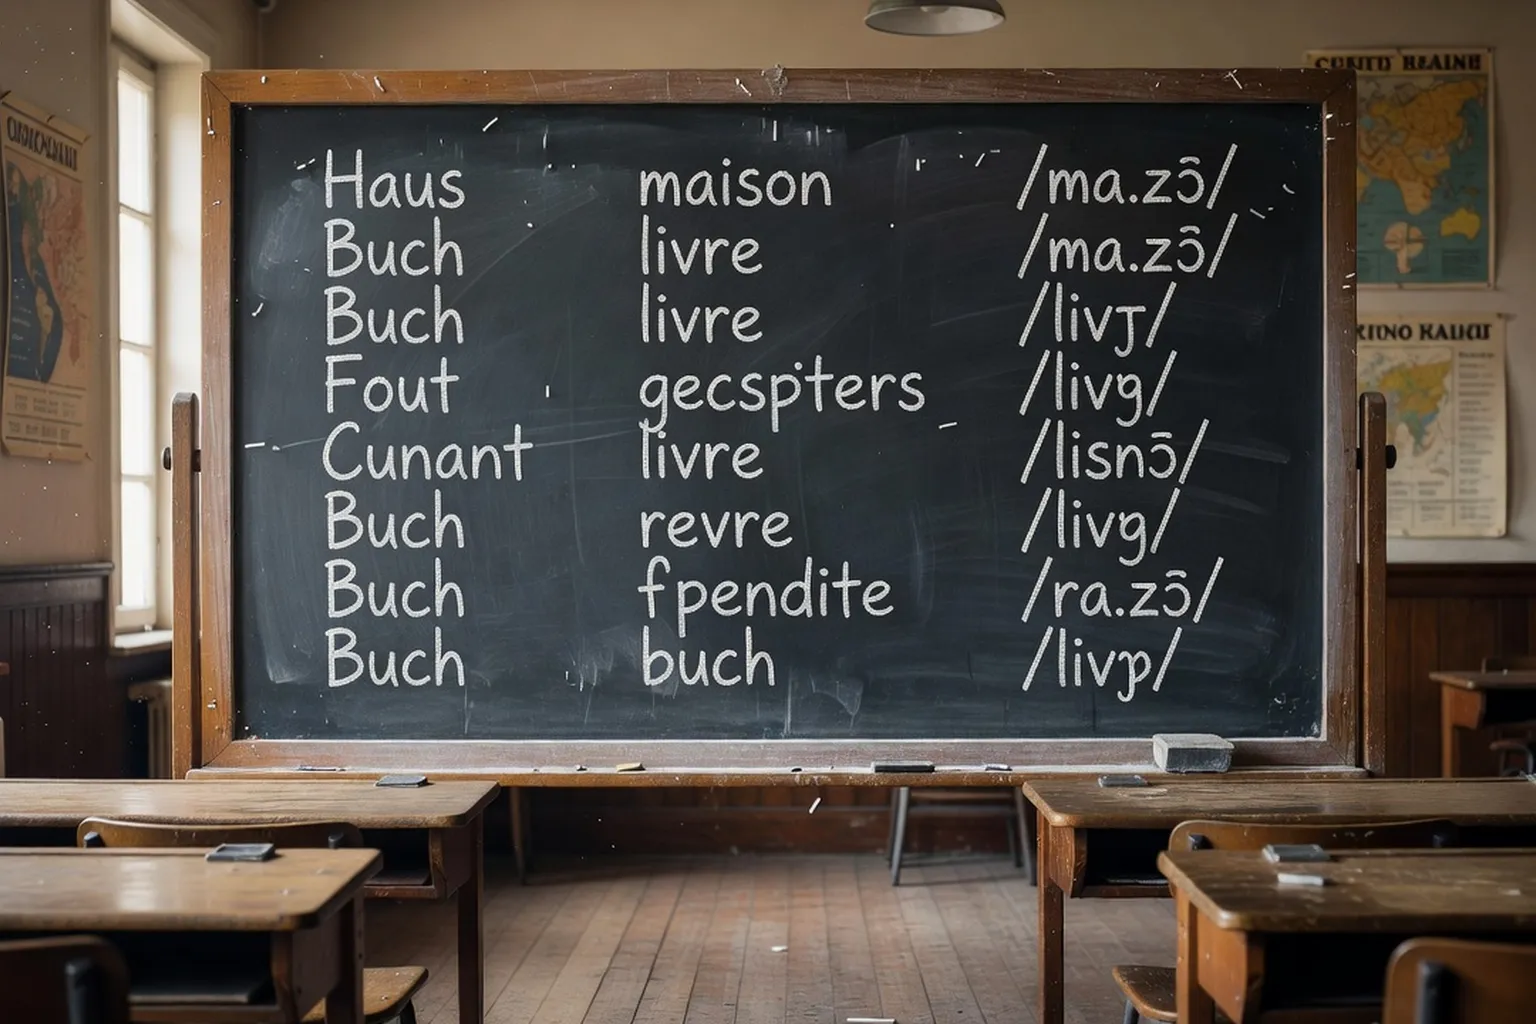 Haus maison /ma.zɔ̃/
Buch livre /ma.zɔ̃/
Buch livre /livɟ/
Fout gecspters /livg/
Cunant livre /lisnɔ̄/
Buch revre /livg/
Buch fpendite /ra.zɔ̃/
Buch buch /livp/